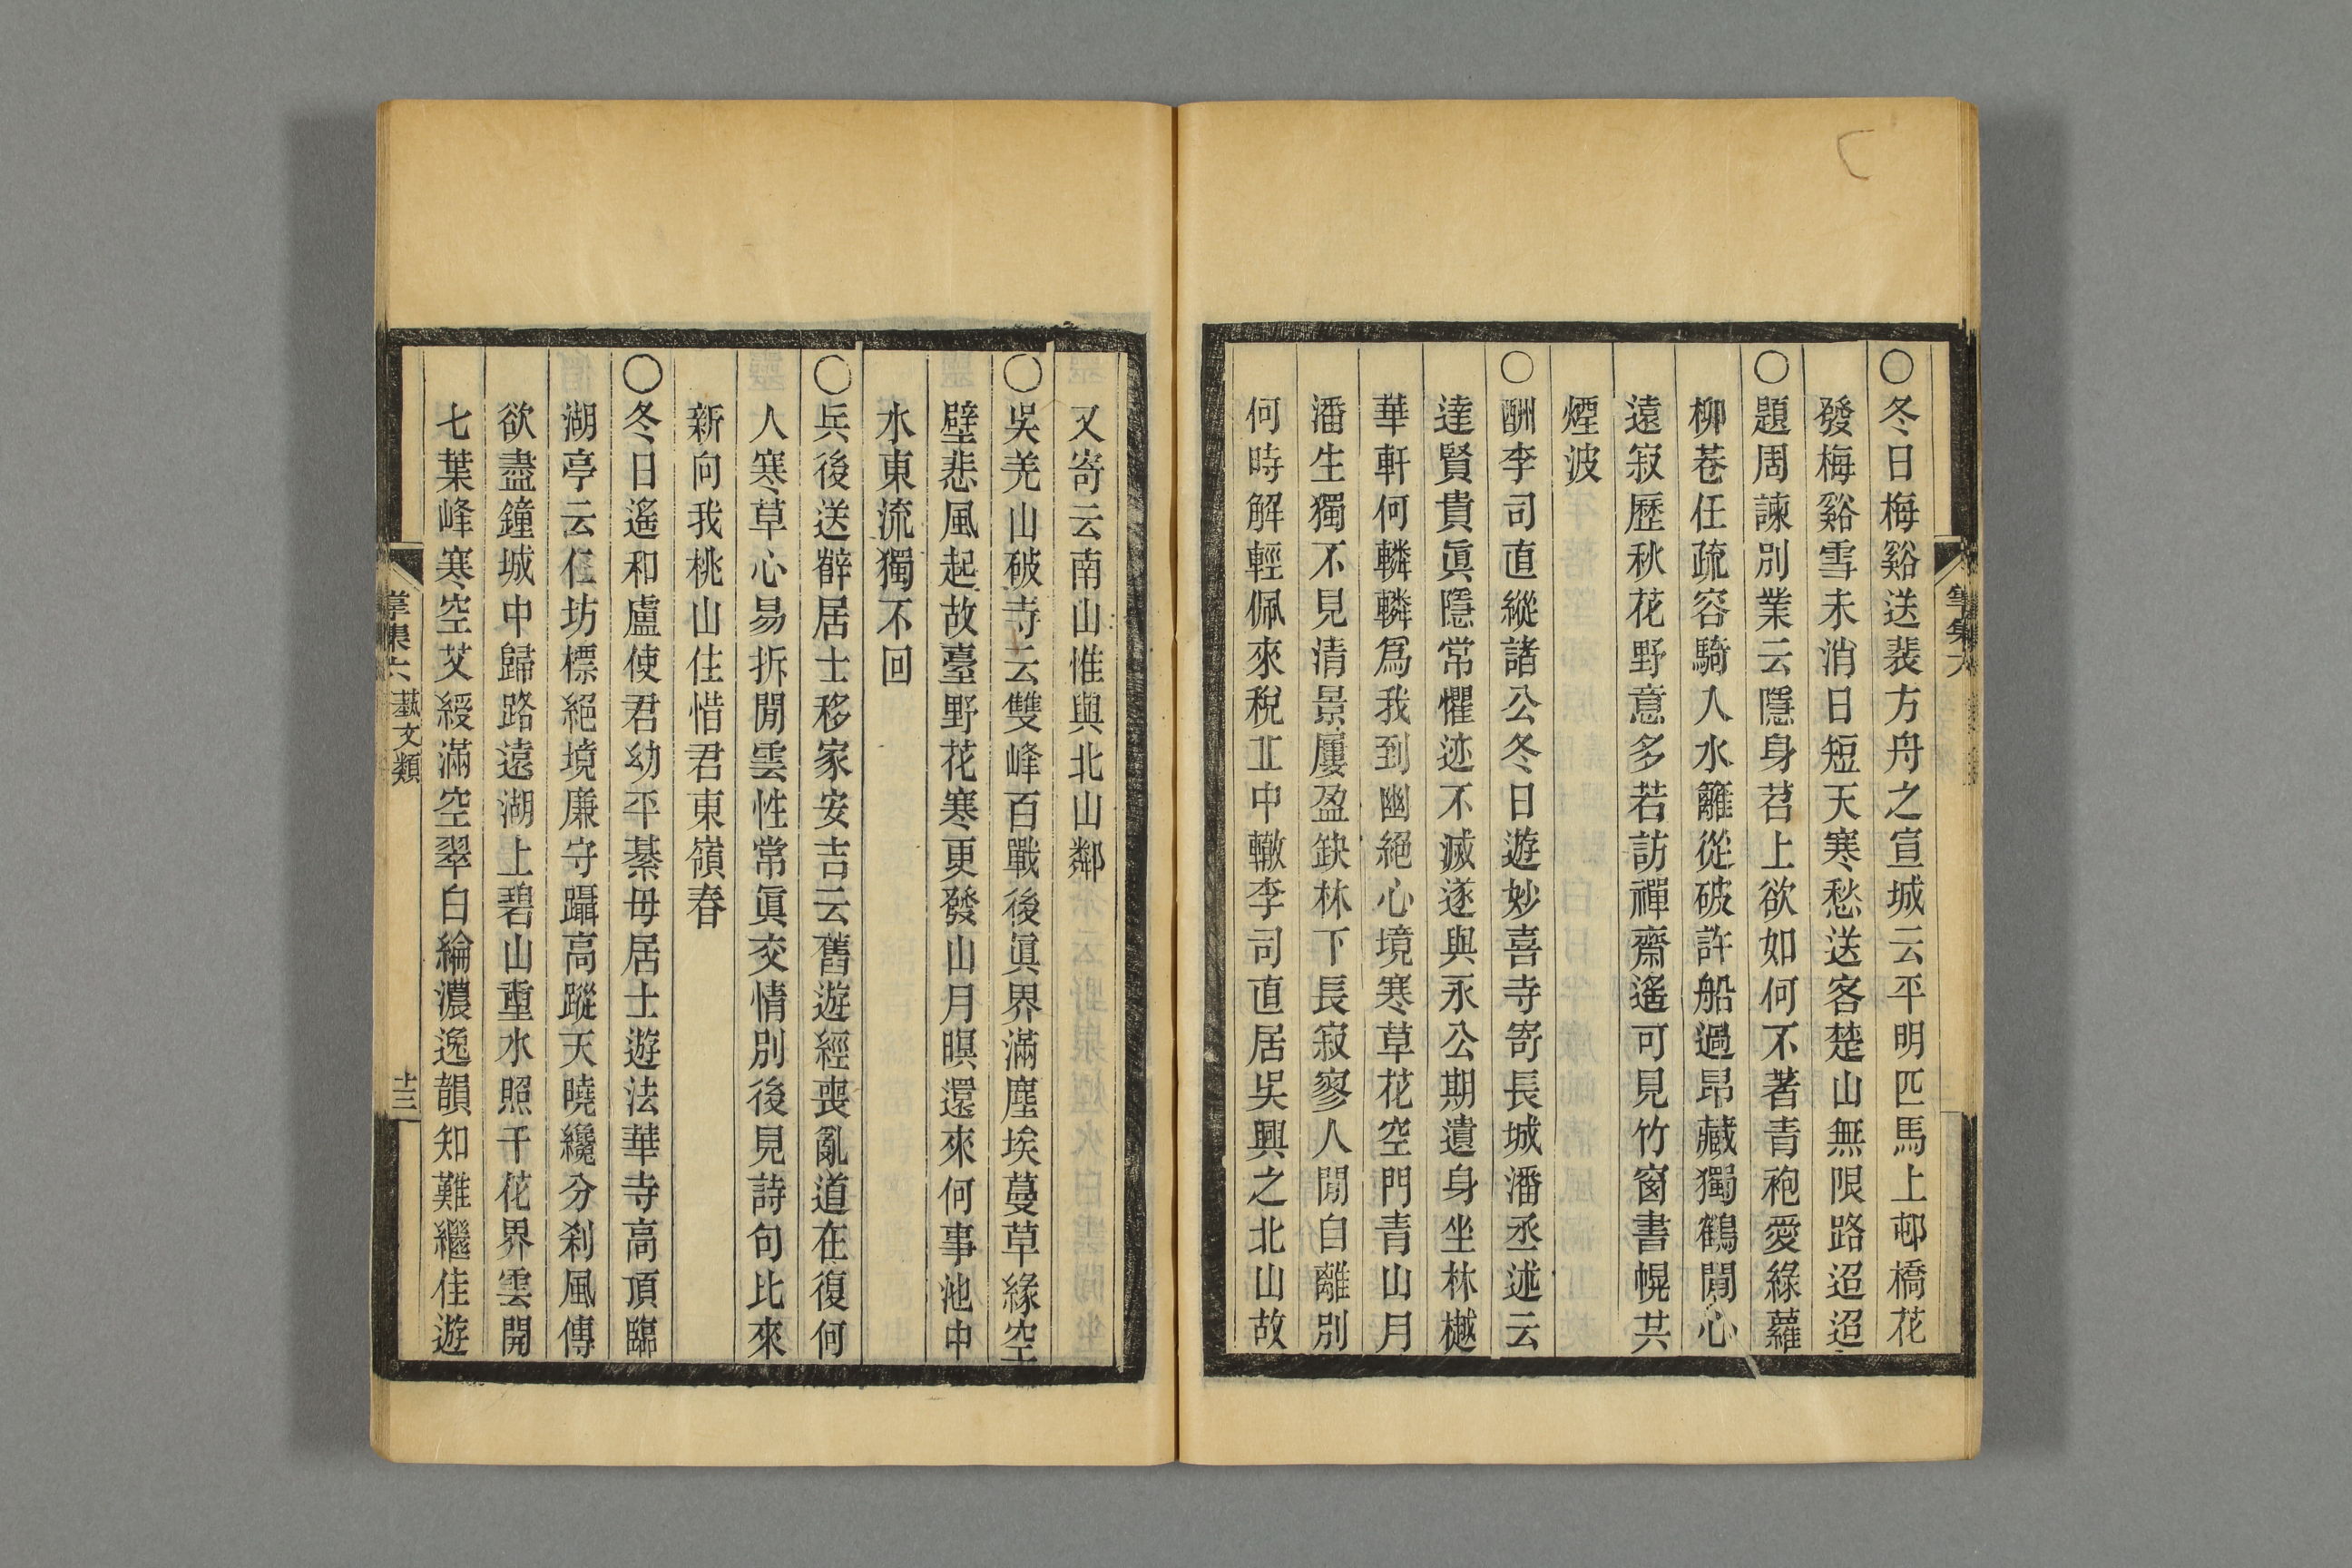 ○冬日梅谿送裴方舟之宣城云平明匹馬上邨橋花
發梅谿雪未消日短天寒愁送客楚山無限路迢迢
○題周諫別業云隱身苕上欲如何不著青袍愛綠蘿
柳巷任疏容騎入水籬從破許船過昂藏獨鶴閒心
遠寂歷秋花野意多若訪禪齋遙可見竹窗書幌共
煙波
○酬李司直縱諸公冬日遊妙喜寺寄長城潘丞述云
達賢貴眞隱常懼迹不滅遂與永公期遺身坐林樾
華軒何轔轔爲我到幽絕心境寒草花空門青山月
潘生獨不見清景屢盈缺林下長寂寥人閒自離別
何時解輕佩來稅丘中轍李司直居吳興之北山故
又寄云南山惟與北山鄰
○吳羌山破寺云雙峰百戰後眞界滿塵埃蔓草緣空
壁悲風起故臺野花寒更發山月暝還來何事池中
水東流獨不回
○兵後送薛居士移家安吉云舊遊經喪亂道在復何
人寒草心易拆閒雲性常眞交情別後見詩句比來
新向我桃山住惜君東嶺春
○冬日遙和盧使君幼平綦毋居士遊法華寺高頂臨
湖亭云仁坊標絕境廉守躡高蹤天曉纔分刹風傳
欲盡鐘城中歸路遠湖上碧山重水照千花界雲開
七葉峰寒空艾綬滿空翠白綸濃逸韻知難繼佳遊
掌集六 藝文類
十三